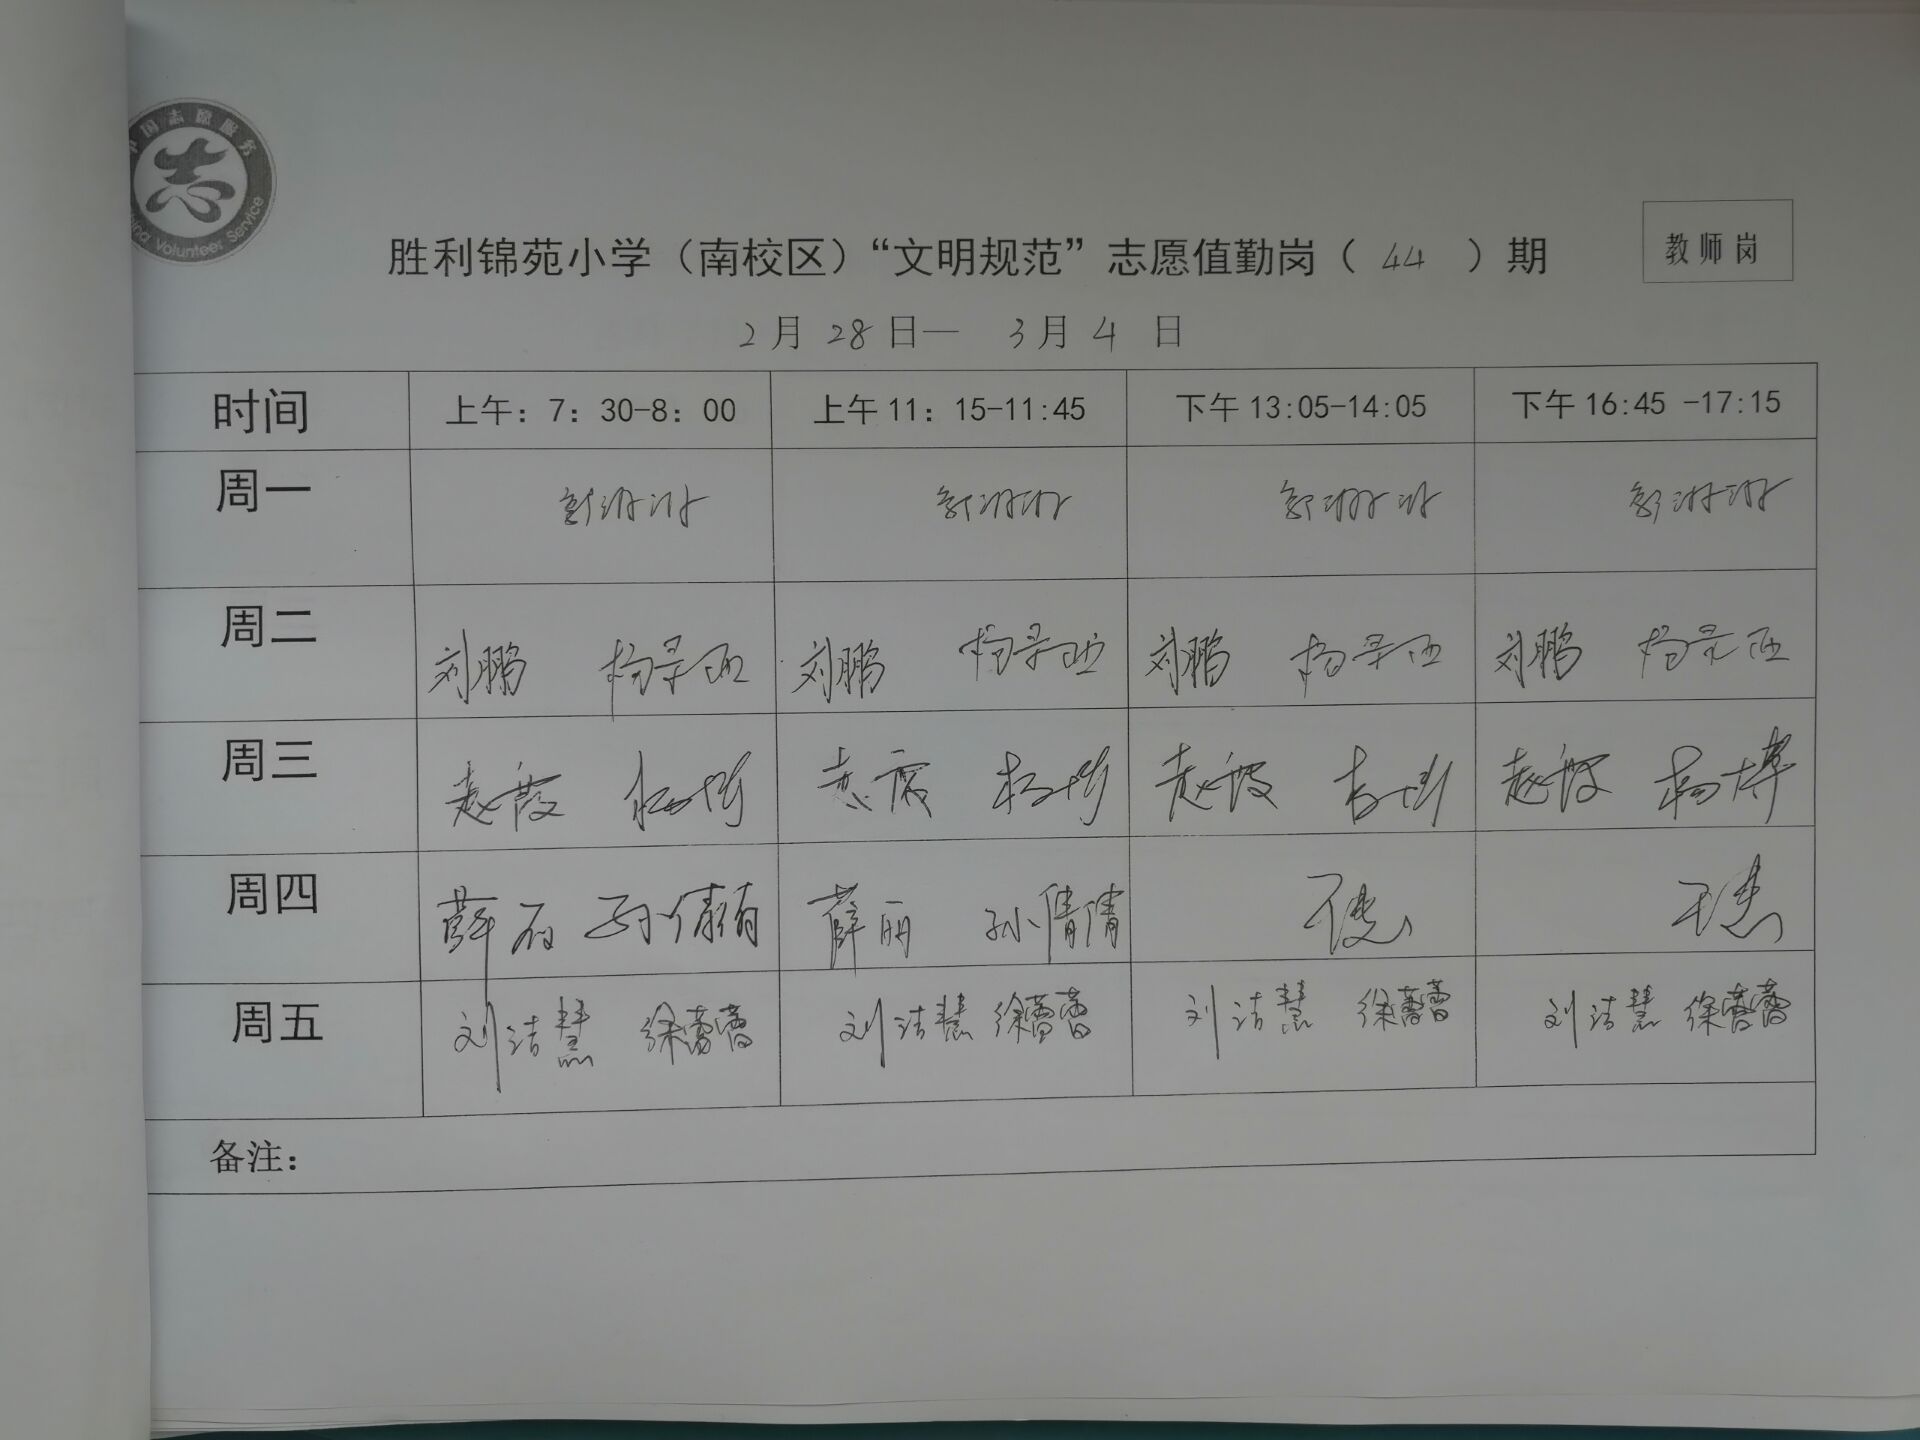 中国志愿服务
志
China Volunteer Service
胜利锦苑小学（南校区）“文明规范”志愿值勤岗（ 44 ）期
教师岗
2月28日— 3月4日
时间 上午：7：30-8：00 上午11：15-11:45 下午13:05-14:05 下午16:45 -17:15
周一
周二 刘鹏 刘鹏 刘鹏 刘鹏
周三 赵霞 赵霞 赵霞 赵霞 杨博
周四 薛丽 孙倩倩 薛丽 孙倩倩
周五 刘洁慧 徐蕾蕾 刘洁慧 徐蕾蕾 刘洁慧 徐蕾蕾 刘洁慧 徐蕾蕾
备注：